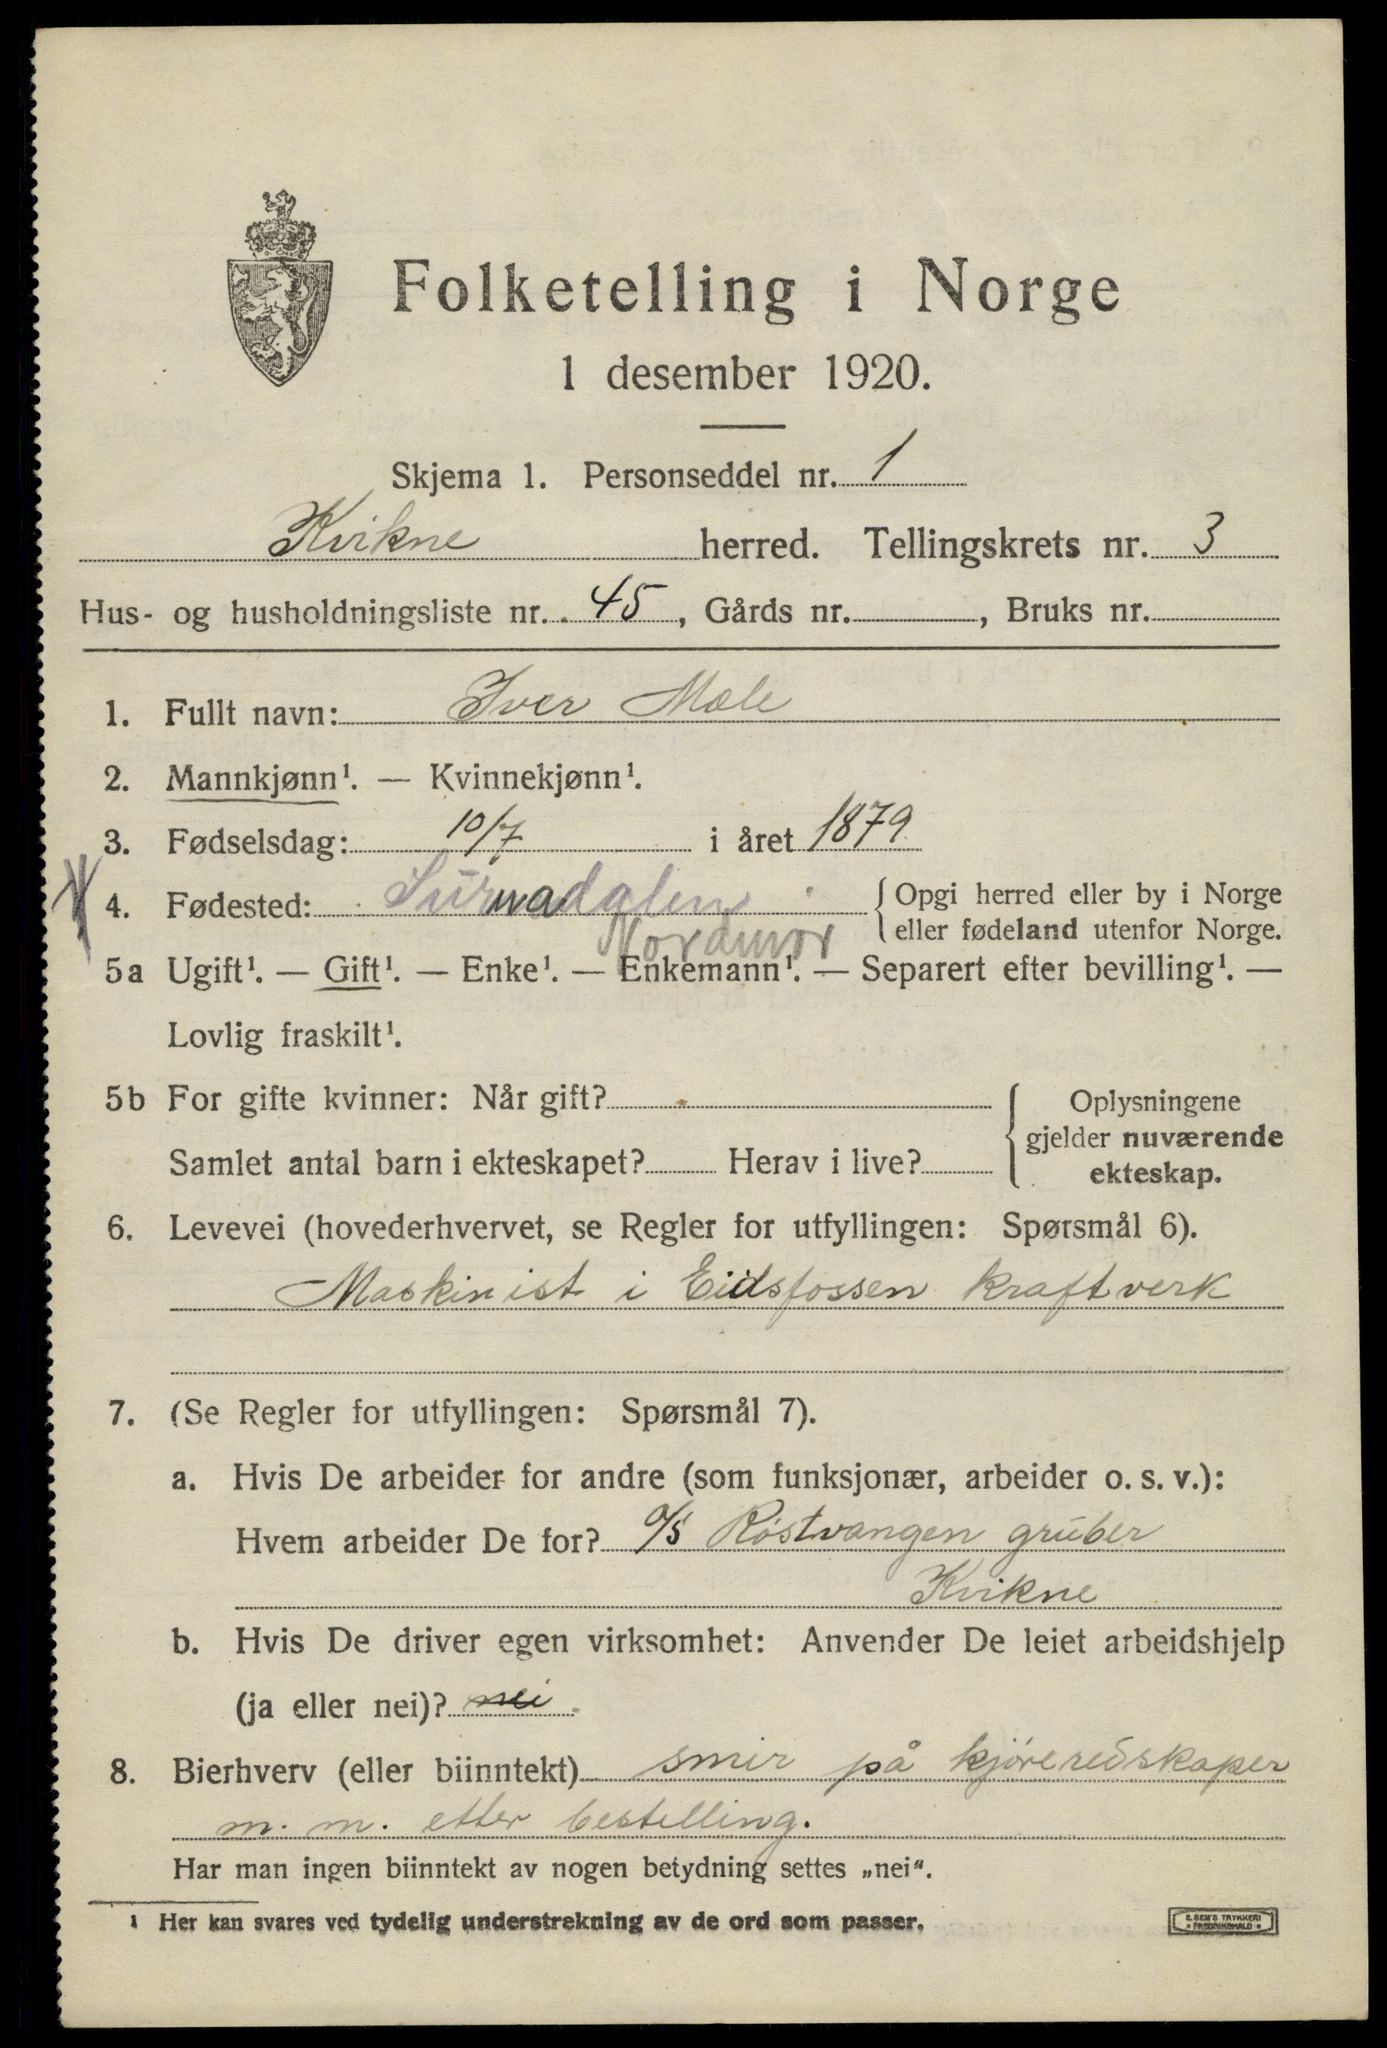 Folketelling i Norge
1 desember 1920.
Skjema 1. Personseddel nr. 1
Kvikne herred. Tellingskrets nr. 3
Hus- og husholdningsliste nr. 45, Gårds nr. , Bruks nr.
1. Fullt navn: Iver Mæle
2. Mannkjønn¹. — Kvinnekjønn¹.
3. Fødselsdag: 10/7 i året 1879
4. Fødested: Surnadalen { Opgi herred eller by i Norge
Nordmør eller fødeland utenfor Norge.
5a Ugift¹. — Gift¹. — Enke¹. — Enkemann¹. — Separert efter bevilling¹. —
Lovlig fraskilt¹.
5b For gifte kvinner: Når gift? { Oplysningene
gjelder nuværende
Samlet antal barn i ekteskapet? Herav i live?
ekteskap.
6. Levevei (hovederhvervet, se Regler for utfyllingen: Spørsmål 6).
Maskinist i Eidsfossen kraftverk
7. (Se Regler for utfyllingen: Spørsmål 7).
a. Hvis De arbeider for andre (som funksjonær, arbeider o. s. v.):
Hvem arbeider De for? a/s Røstvangen gruber
Kvikne
b. Hvis De driver egen virksomhet: Anvender De leiet arbeidshjelp
(ja eller nei)? nei
8. Bierhverv (eller biinntekt) smir på kjøreredskaper
m. m. etter bestilling.
Har man ingen biinntekt av nogen betydning settes „nei“.
¹ Her kan svares ved tydelig understrekning av de ord som passer.
E. SEM'S TRYKKERI
FREDRIKSHALD